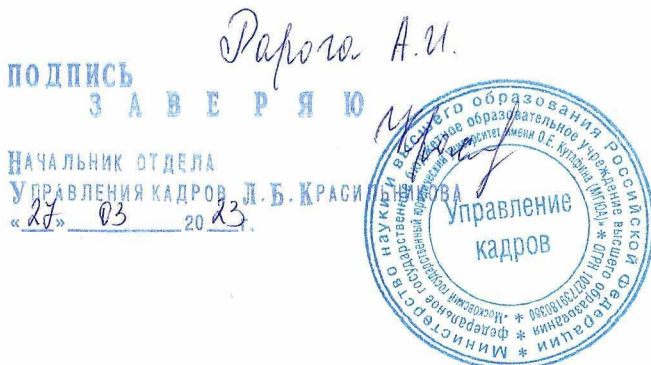 Рарога А.И.
ПОДПИСЬ
ЗАВЕРЯЮ
НАЧАЛЬНИК ОТДЕЛА
УПРАВЛЕНИЯ КАДРОВ Л.Б. КРАСИЛЬНИКОВА
«27» 03 2023г.
Министерство науки и высшего образования Российской Федерации *
федеральное государственное бюджетное образовательное учреждение высшего образования *
«Московский государственный юридический университет имени О.Е. Кутафина (МГЮА)» * ОГРН 1027739180380
Управление
кадров